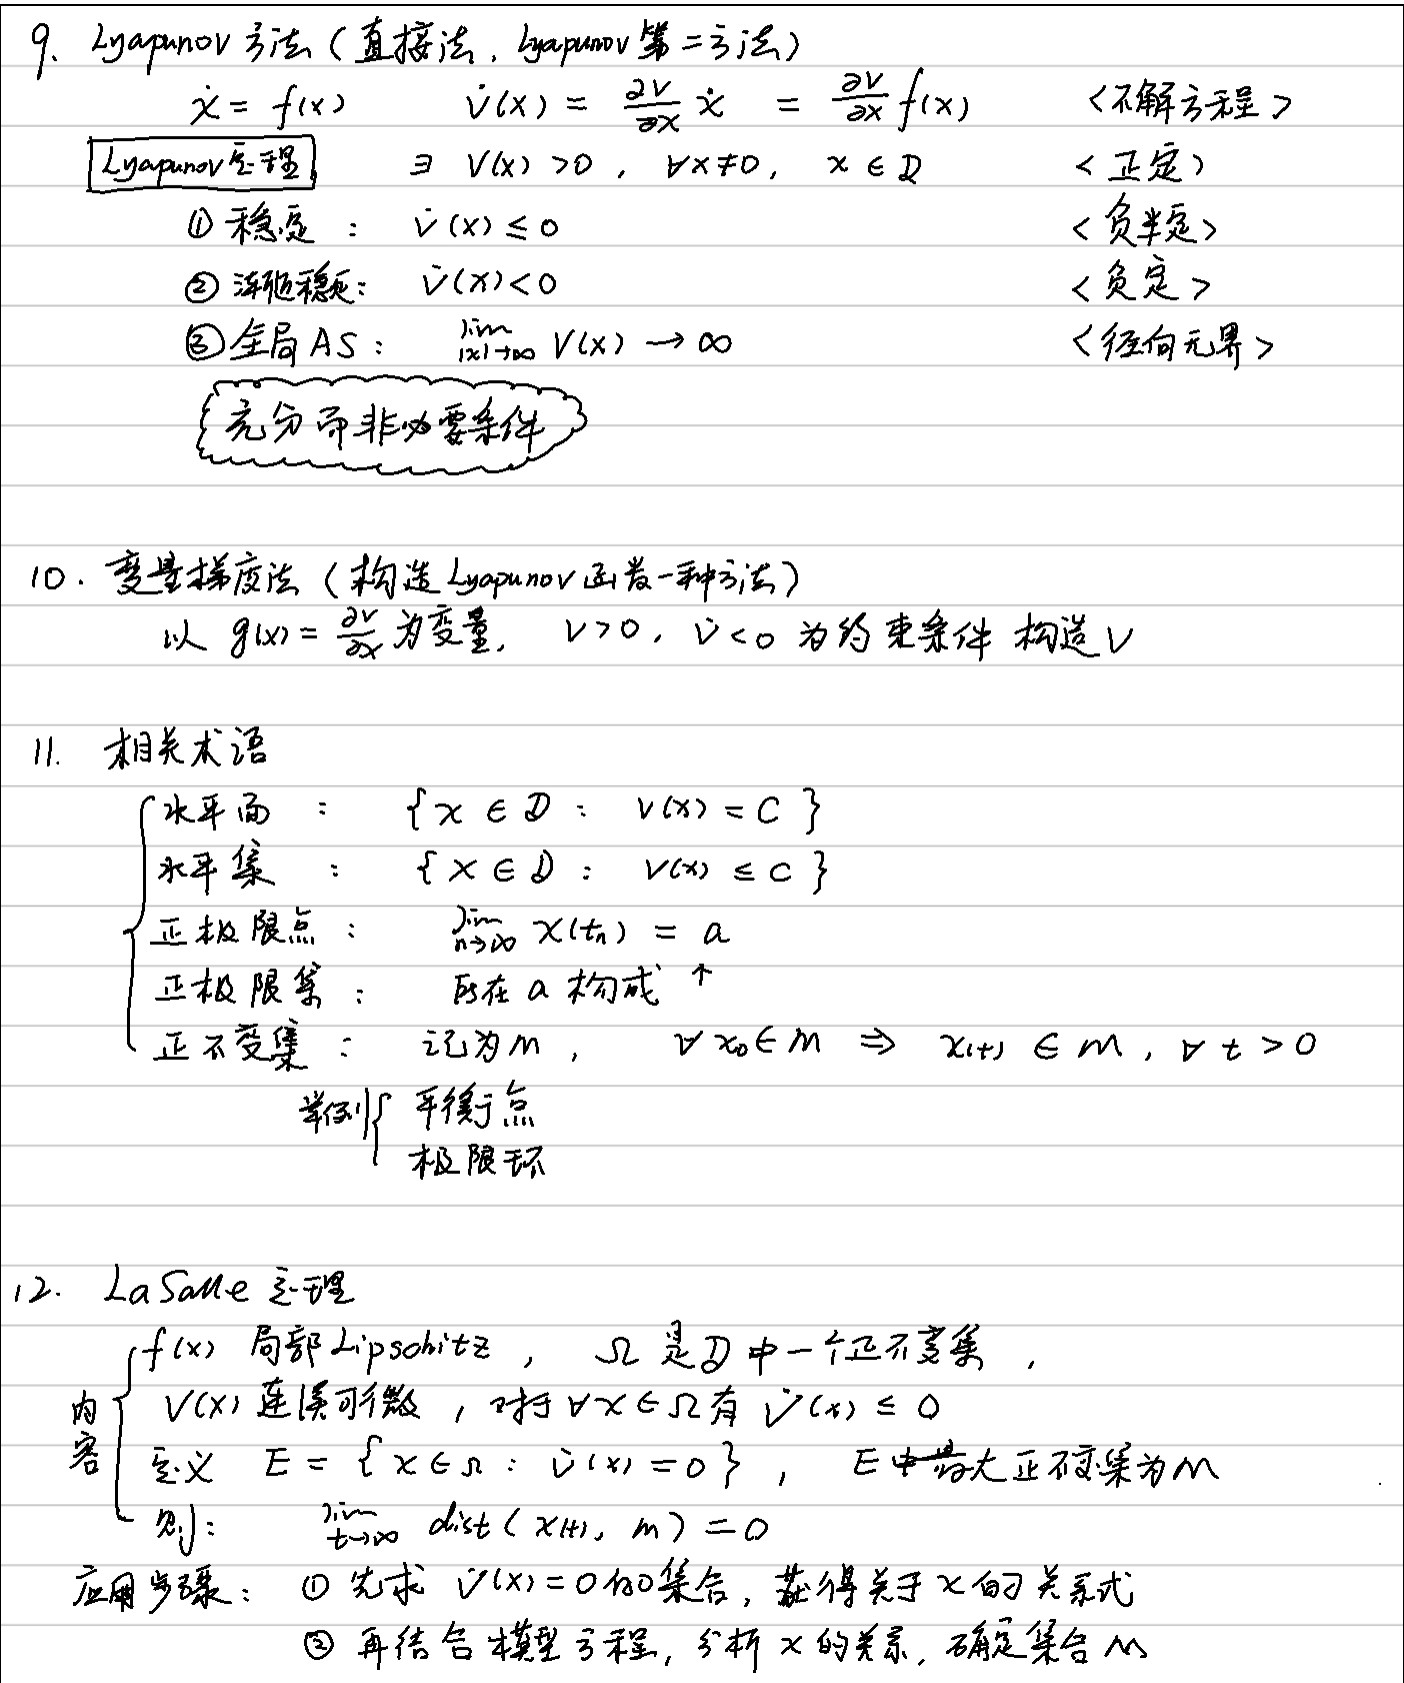 9. Lyapunov方法(直接法, Lyapunov第二方法)
ẋ = f(x) V̇(x) = ∂V/∂x ẋ = ∂V/∂x f(x) <不解方程>
Lyapunov定理 ∃ V(x) >0, ∀x≠0, x ∈ D <正定>
① 稳定: V̇(x) ≤ 0 <负半定>
② 渐近稳定: V̇(x)<0 <负定>
③ 全局AS: lim |x|→∞ V(x) → ∞ <径向无界>
充分而非必要条件
10. 变量梯度法(构造Lyapunov函数一种方法)
以 g(x) = ∂V/∂x 为变量, V>0, V̇<0 为约束条件 构造V
11. 相关术语
水平面: {x ∈ D: V(x) = C}
水平集: {x ∈ D: V(x) ≤ C}
正极限点: lim n→∞ x(tn) = a
正极限集: 所在 a 构成 ↑
正不变集: 记为M, ∀x₀∈M ⇒ x(t) ∈ M, ∀ t > 0
举例{ 平衡点
极限环
12. LaSalle 定理
内容 f(x) 局部Lipschitz, Ω 是D中一个正不变集,
V(x) 连续可微, 对于∀x∈Ω有 V̇(x) ≤ 0
定义 E = {x∈Ω: V̇(x) = 0}, E中最大正不变集为M
则: lim t→∞ dist(x(t), M) = 0
应用步骤: ① 先求 V̇(x)=0的集合, 获得关于x的关系式
② 再结合模型方程, 分析x的关系, 确定集合M